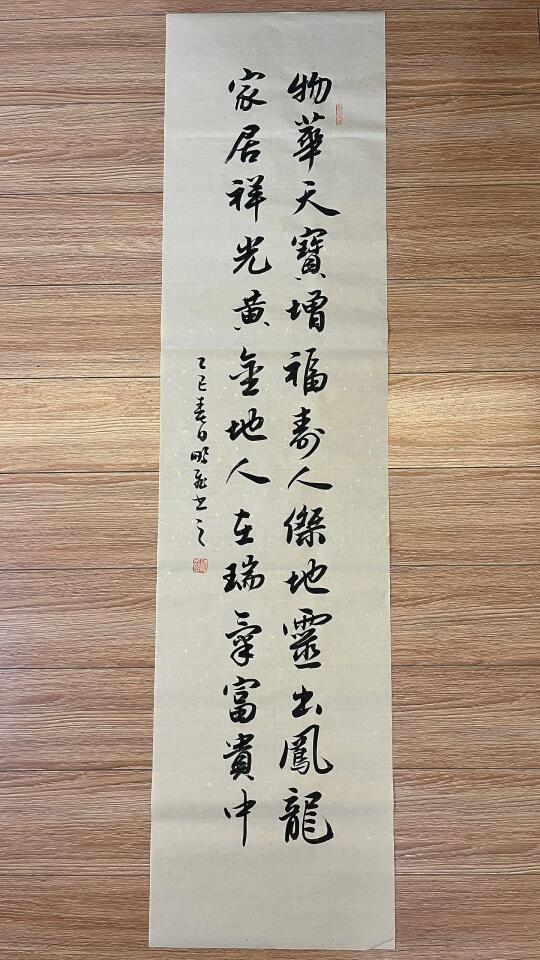 物華天寶增福壽人傑地靈出鳳龍
家居祥光黃金地人在瑞氣富貴中
乙巳春日明龍書之